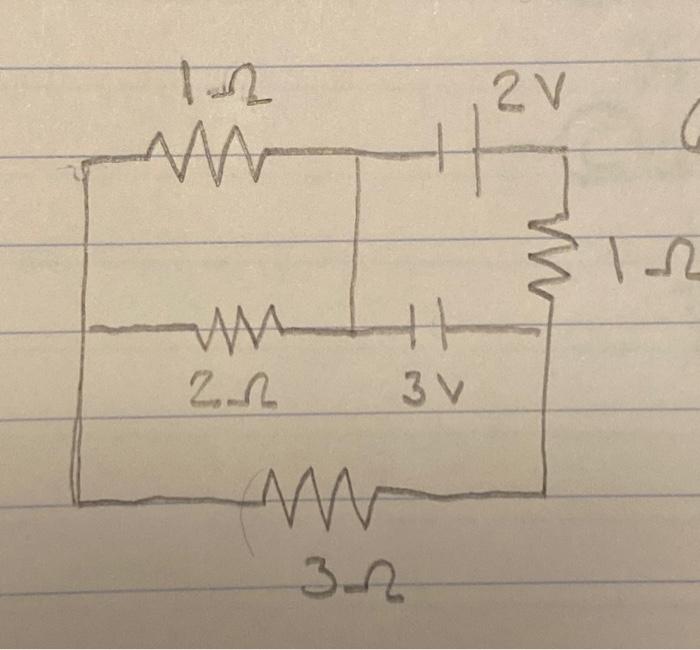 1Ω
2V
1Ω
2Ω
3V
3Ω